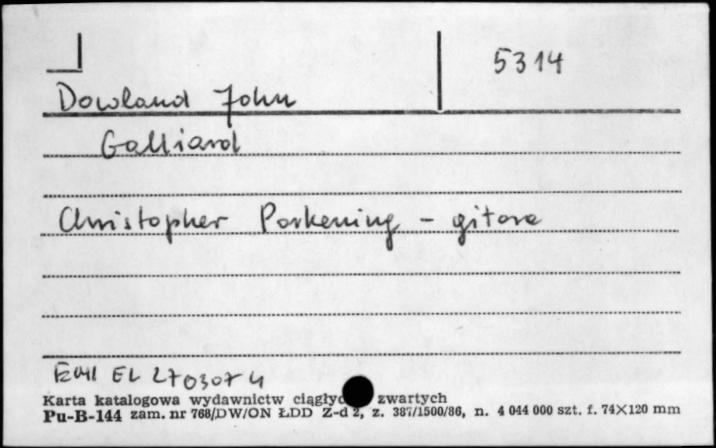 5314
Dowland John
Galliard
Christopher Parkening - gitara
EMI EL 2703074
Karta katalogowa wydawnictw ciągłyc zwartych
Pu-B-144 zam. nr 768/DW/ON ŁDD Z-d 2, z. 387/1500/86, n. 4 044 000 szt. f. 74×120 mm